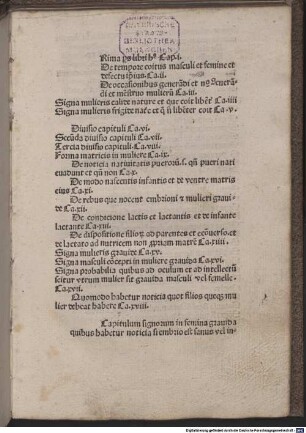 BIBLIOTHECA
Rima ps libri hʒ Cap.i.
De tempore coitus masculi et femine et
defectu ipius. Ca.ii
De occasionibus generādi et nō generā
di et mēstruo mulierū Ca.iii.
Signa mulieris calide nature et que coit libēt Ca.iiii
Signa mulieris frigide natē et q̄ nō libēter coit Ca.v.
Diuisio capituli Ca.vi.
Secūda diuisio capituli Ca.vii.
Tercia diuisio capituli Ca.viii.
Forma matricis in muliere Ca.ix.
De noticia natiuitatis pueroꝝ.s. qñ pueri nati
euadunt et qñ non Ca.x.
De modo nascentis infantis et de ventre matris
eius Ca.xi.
De rebus que nocent embrioni ⁊ mulieri graui
de Ca.xii.
De condicione lactis et lactantis et de infante
lactante Ca.xiii.
De dispositione filioꝝ ad parentes et ecōuerso et
de lactato ad nutricem non ꝓpriam matrē Ca.xiiii.
Signa mulieris grauide Ca.xv.
Signa masculi ꝯcepti in muliere grauida Ca.xvi.
Signa probabilia quibus ad oculum et ad intellectū
scitur vtrum mulier sit grauida masculi vel femelle
Ca.xvii.
Quomodo habetur noticia quot filios queqʒ mu
lier debeat habere Ca.xviii.
Capitulum signorum in femina grauida
quibus habetur noticia si embrio est sanus vel in-